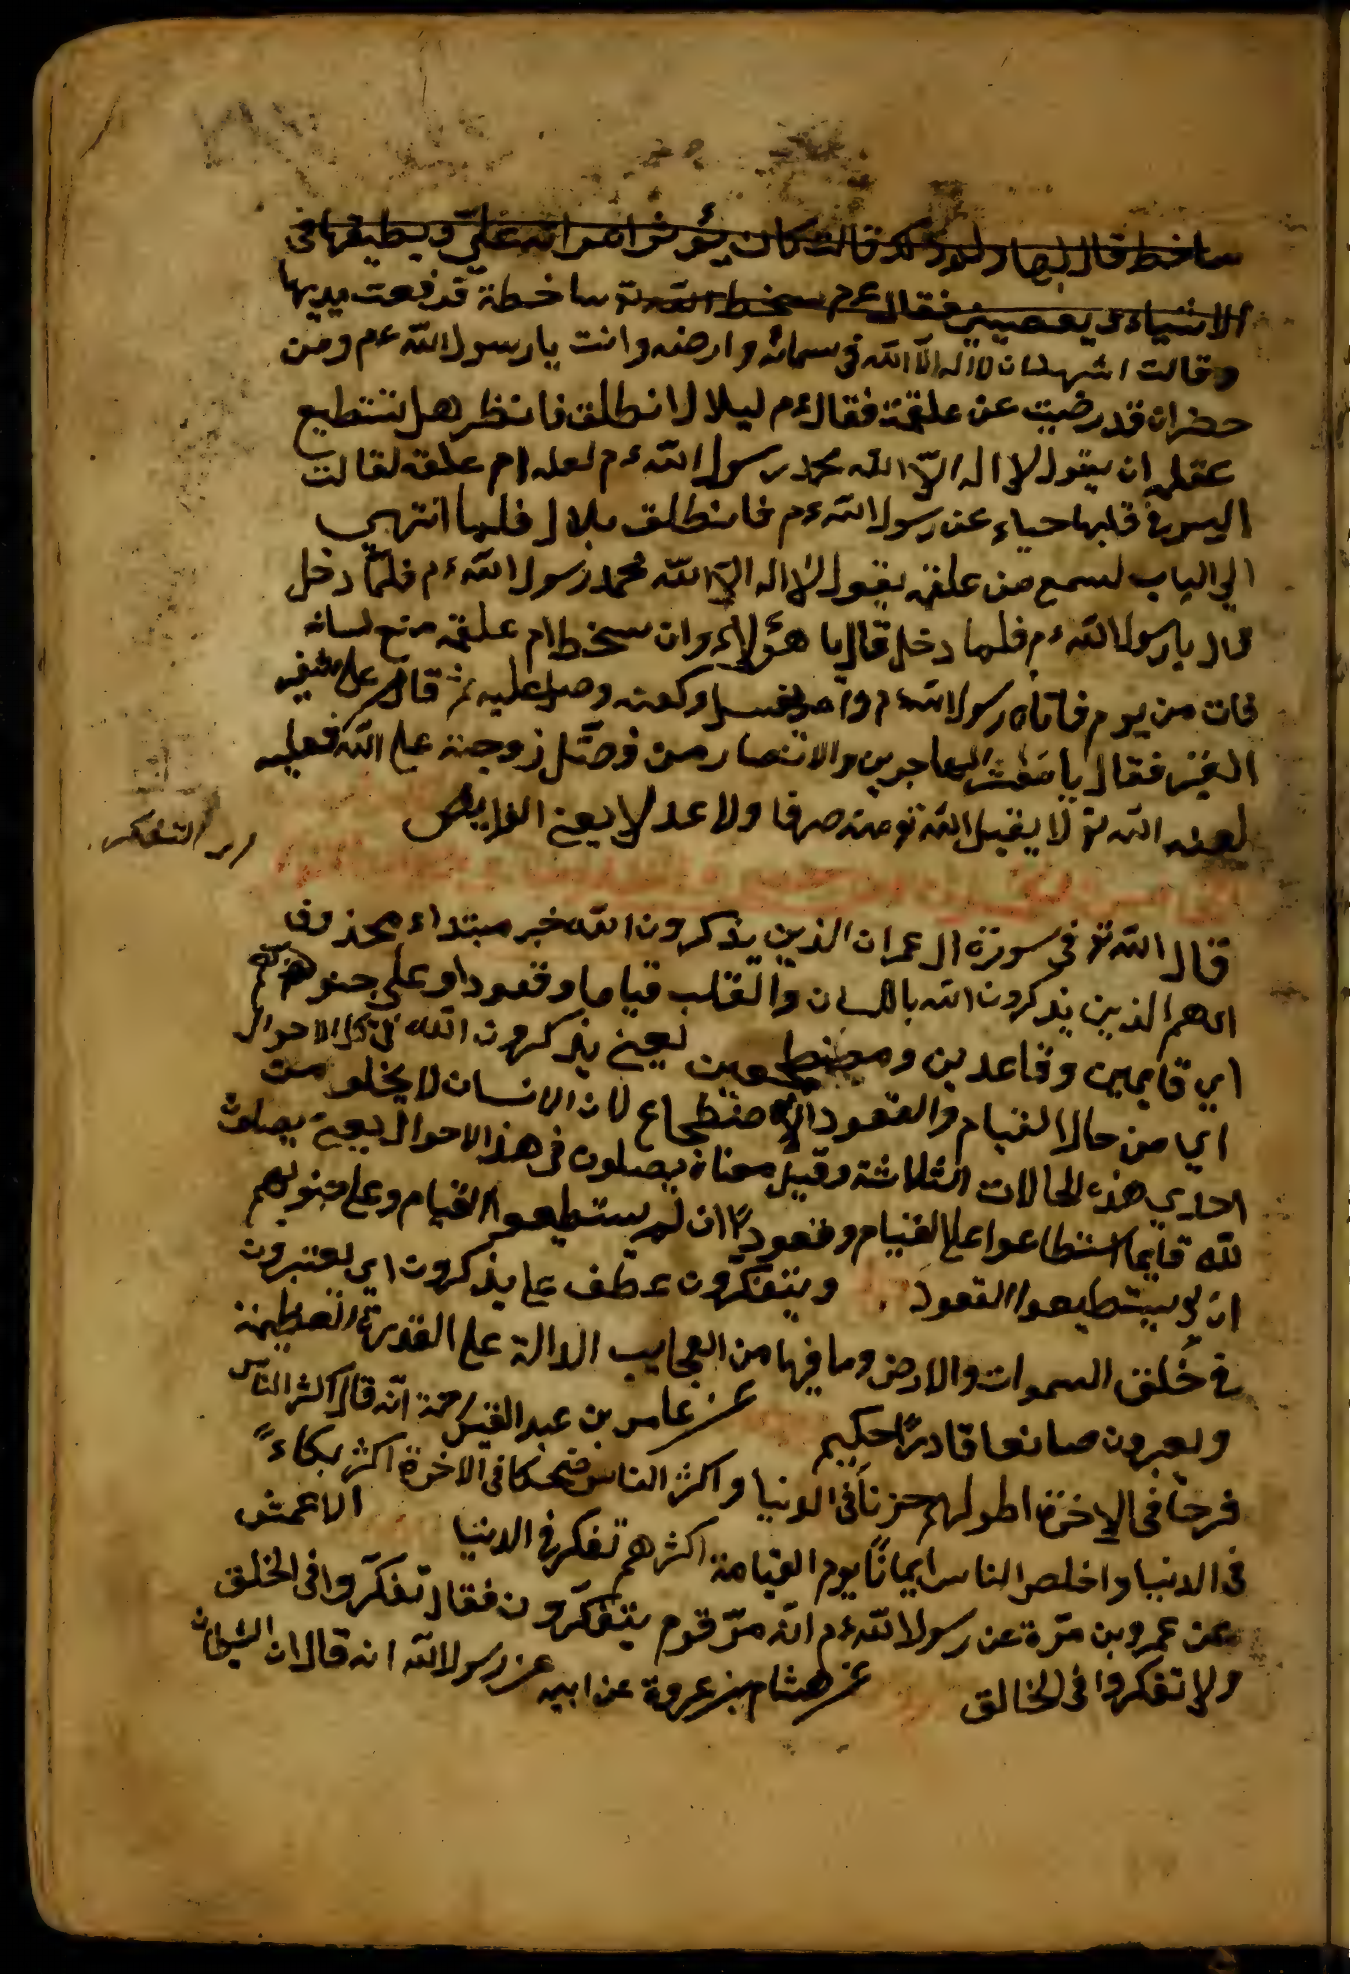 ساخط قال لها ولم ذلك قالت كان يؤثر امراته عليّ ويطيعها فى
الاشياء ويعصينى فقال ءم سخط الله تو ساخطة قد فعت يديها
وقالت اشهد ان لا اله الا الله فى سمائه وارضه وانت يا رسول الله ءم ومن
حضر ان قد رضيت عن علقمة فقال ءم ليلال انطلق فانظر هل تستطيع
ان يقول لا اله الا الله محمد رسول الله ءم لعله ام علقه لقالت
قلبها حياء عن رسول الله ءم فانطلق بلال فلما انتهى
الى الباب لسمع من علقمه يقول لا اله الا الله محمد رسول الله ءم فلمّا دخل
قال يا رسول الله ءم فلما دخل قال يا هؤلاء وان سخط ام علقمه منع لسانه
فمات من يوم فاتاه رسول الله ءم وامر بغسله وكفنه وصلى عليه ثم قال على شفير
القبر فقال يا معشر المهاجرين والانصار من فضّل زوجته على الله فعليه
لعنه الله تو لا يقبل الله تو منه صرفا ولا عدلا يعنى الفرايض
التفكر
قال الله تو فى سورة ال عمران الذين يذكرون الله خبر مبتداء محذوف
اى هم الذين يذكرون الله باللسان والقلب قياما وقعودا وعلى جنوبهم
اى قايمين وقاعدين ومضطجعين يعنى يذكرون الله فى كل الاحوال
اى من حال القيام والقعود الاضطجاع لان الانسان لا يخلو من
احدى هذه الحالات الثلاثة وقيل معناه يصلون فى هذا الاحوال يعنى يصلون
لله قايما استطاعوا على القيام وقعودا ان لم يستطيعوا القيام وعلى جنوبهم
ان لم يستطيعوا القعود ويتفكّرون عطف على يذكرون اى يعتبرون
فى خلق السموات والارض وما فيها من العجايب الدالة على القدرة العظيمة
صانعا قادرًا حكيم عن عامر بن عبد القيس انه قال اكثر الناس
فرحا فى الاخرة اطولهم حزنا فى الدنيا واكثر الناس ضحكا فى الاخرة اكثر بكاءً
فى الدنيا واخلص الناس ايمانا يوم القيامة اكثرهم تفكر فى الدنيا الاعمش
عن عمرو بن مرّة عن رسول الله ءم انه مرّ قوم يتفكّرون فقال تفكّروا فى الخلق
ولا تفكروا فى الخالق عن هشام بن عروة عن ابيه عن رسول الله انه قال ان الشيطان